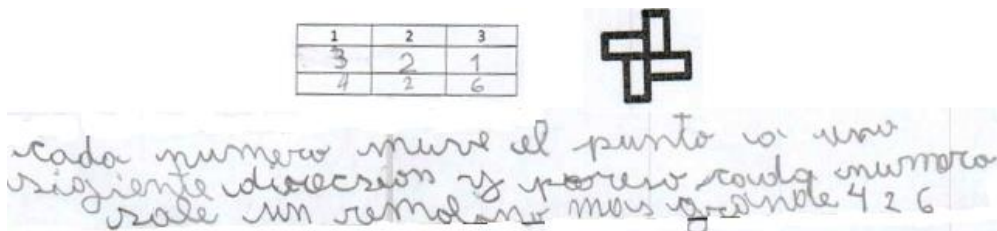 1 2 3
3 2 1
4 2 6
cada numero muve el punto a uno
sigiente direcsion y poreso cada numero
sale un remolino mas grande 4 2 6